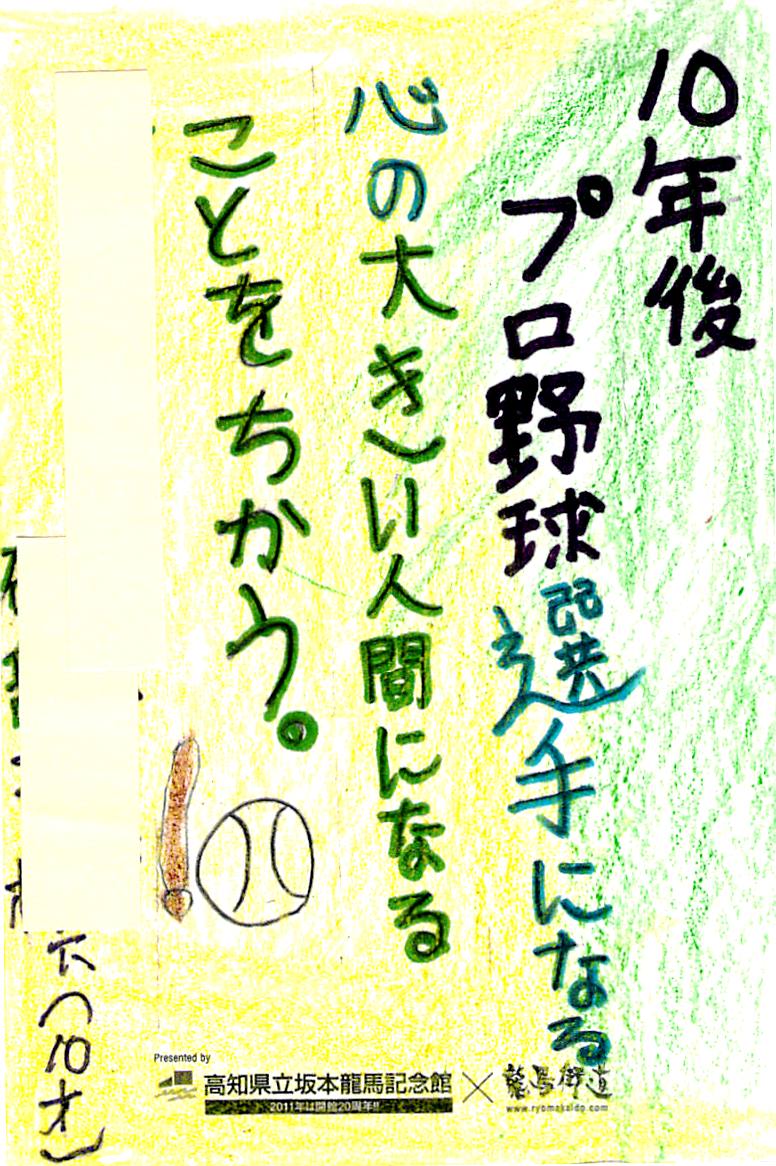 10年後
プロ野球選手になる
心の大きい人間になる
ことをちかう。
(10才)
Presented by
高知県立坂本龍馬記念館
2011年は開館20周年!!
龍馬街道
www.ryomakaido.com